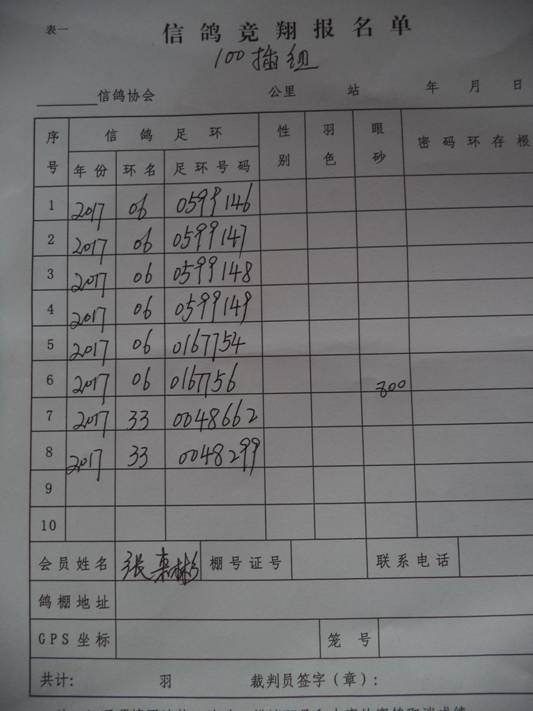 表一
信鸽竞翔报名单
100插组
信鸽协会 公里 站 年 月 日
序号 信鸽足环 性别 羽色 眼砂 密码环存根
年份 环名 足环号码
1 2017 06 0599146
2 2017 06 0599147
3 2017 06 0599148
4 2017 06 0599149
5 2017 06 0167754
6 2017 06 0167756 800
7 2017 33 0048662
8 2017 33 0048299
9
10
会员姓名 张嘉彬 棚号证号 联系电话
鸽棚地址
GPS坐标 笼号
共计: 羽 裁判员签字(章):